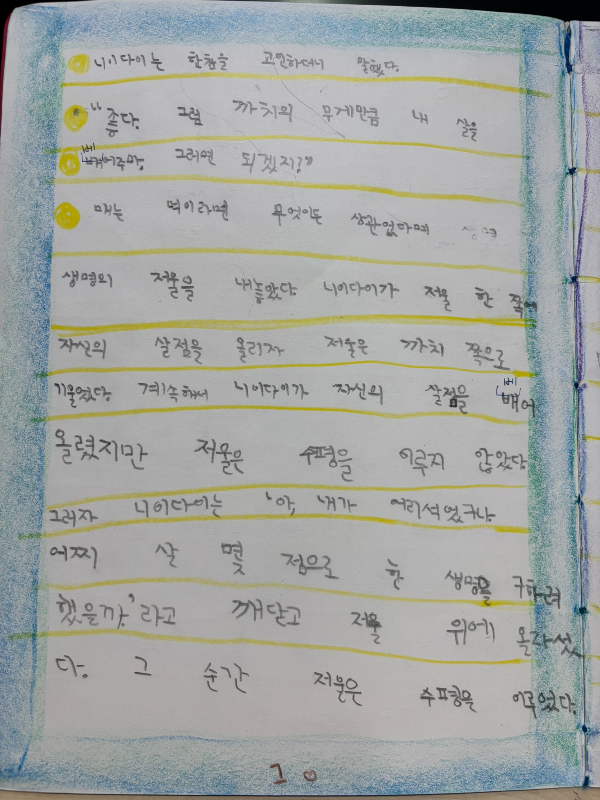 니이다이는 한참을 고민하더니 말했다.
"좋다. 그럼 까치의 무게만큼 내 살을
베
빼어주마. 그러면 되겠지?"
매는 먹이라면 무엇이든 상관없다며
생명의 저울을 내놓았다. 니이다이가 저울 한 쪽에
자신의 살점을 올리자 저울은 까치 쪽으로
기울었다. 계속해서 니이다이가 자신의 살점을 (베)빼어
올렸지만 저울은 수평을 이루지 않았다.
그러자 니이다이는 '아, 내가 어리석었구나.
어찌 살 몇 점으로 한 생명을 구하려
했을까'라고 깨닫고 저울 위에 올라섰
다. 그 순간 저울은 수평을 이루었다.
10